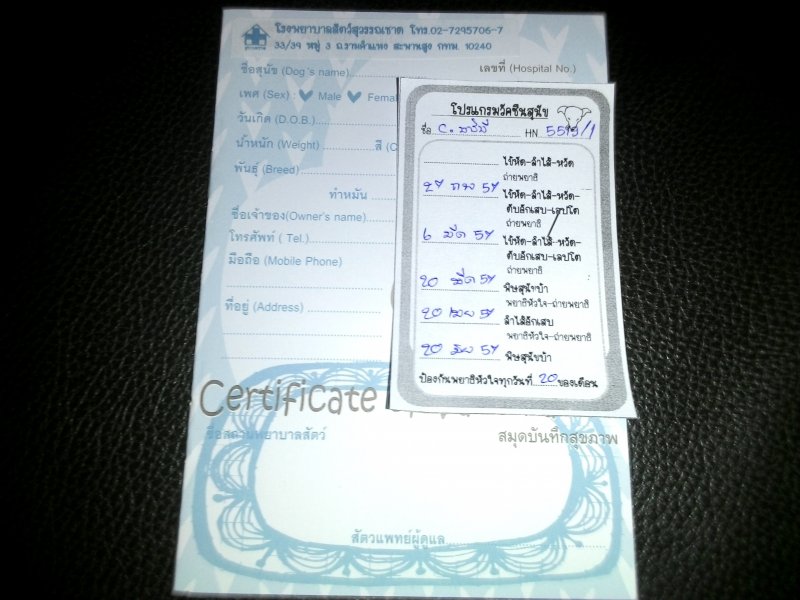 โรงพยาบาลสัตว์สุวรรณชาด โทร.02-7295706-7
33/39 หมู่ 3 ถ.รามคำแหง สะพานสูง กทม. 10240
ชื่อสุนัข (Dog's name) เลขที่ (Hospital No.)
เพศ (Sex) : Male Fema
วันเกิด (D.O.B.)
น้ำหนัก (Weight) สี (C
พันธุ์ (Breed)
ทำหมัน
ชื่อเจ้าของ(Owner's name)
โทรศัพท์ ( Tel.)
มือถือ (Mobile Phone)
ที่อยู่ (Address)
Certificate
ชื่อสถานพยาบาลสัตว์ สมุดบันทึกสุขภาพ
สัตวแพทย์ผู้ดูแล
โปรแกรมวัคซีนสุนัข
ชื่อ C. HN 5519/1
ไข้หัด-ลำไส้-หวัด
ถ่ายพยาธิ
27 กพ 57 ไข้หัด-ลำไส้-หวัด-
ตับอักเสบ-เลปโต
ถ่ายพยาธิ
6 มีค 57 ไข้หัด-ลำไส้-หวัด-
ตับอักเสบ-เลปโต
ถ่ายพยาธิ
20 มีค 57 พิษสุนัขบ้า
พยาธิหัวใจ-ถ่ายพยาธิ
20 เมย 57 ลำไส้อักเสบ
พยาธิหัวใจ-ถ่ายพยาธิ
20 มิย 57 พิษสุนัขบ้า
ป้องกันพยาธิหัวใจทุกวันที่ 20 ของเดือน